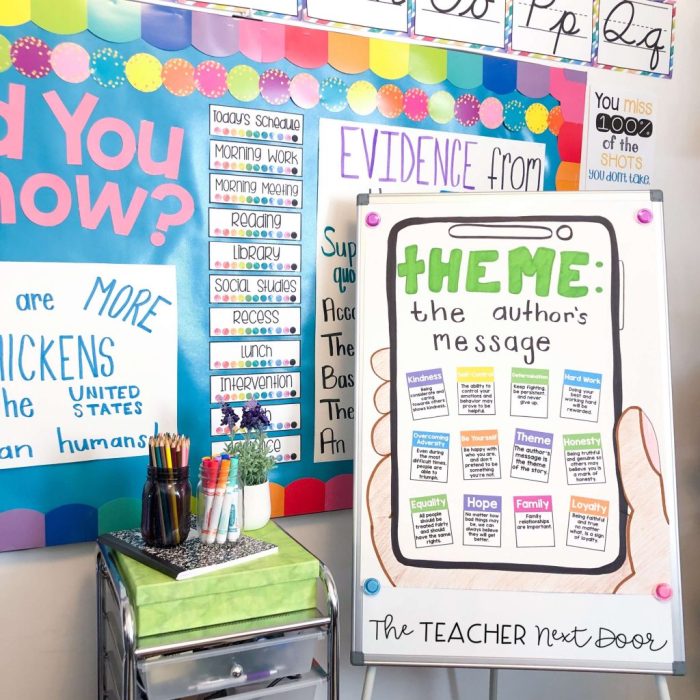 Pp
Qq
d You
now?
are MORE
HICKENS
he UNITED
STATES
an humans!
Today's Schedule
Morning Work
Morning Meeting
Reading
Library
Social Studies
Recess
Lunch
Intervention
EVIDENCE from
Sup
quo
Acco
The
Bas
The
An
You miss
100%
of the
SHOTS
you don't take.
THEME:
the author's
message
Kindness
Being
considerate and
caring
towards others
shows kindness.
The ability to
control your
emotions and
behavior may
prove to be
helpful.
Determination
Keep fighting,
be persistent
and never
give up.
Hard Work
Doing your
best and
working hard
will be
rewarded.
Overcoming
Adversity
Even during
the most
difficult times,
people are
able to
triumph.
Be Yourself
Be happy with
who you are,
and don't
pretend to be
something
you're not.
Theme
The author's
message is
the theme
of the story.
Honesty
Being truthful
and genuine so
others may
believe you is
a mark of
honesty.
Equality
All people
should be
treated fairly
and should
have the same
rights.
Hope
No matter how
bad things may
be, we can
always believe
they will get
better.
Family
Family
relationships
are important.
Loyalty
Being faithful
and true
no matter
what, is a sign
of loyalty.
The TEACHER Next Door